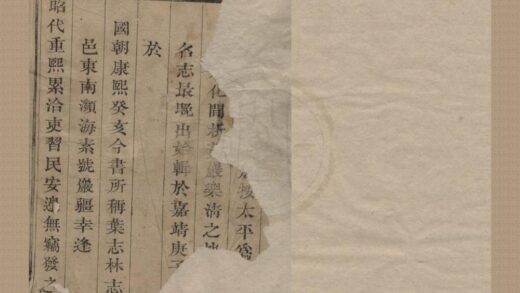 按太平爲
化間析黃巖樂清之地
名志最晚出始輯於嘉靖庚子
於
國朝康熙癸亥今書所稱葉志林志
邑東南瀕海素號巖疆幸逢
昭代重熙累洽吏習民安遂無竊發之